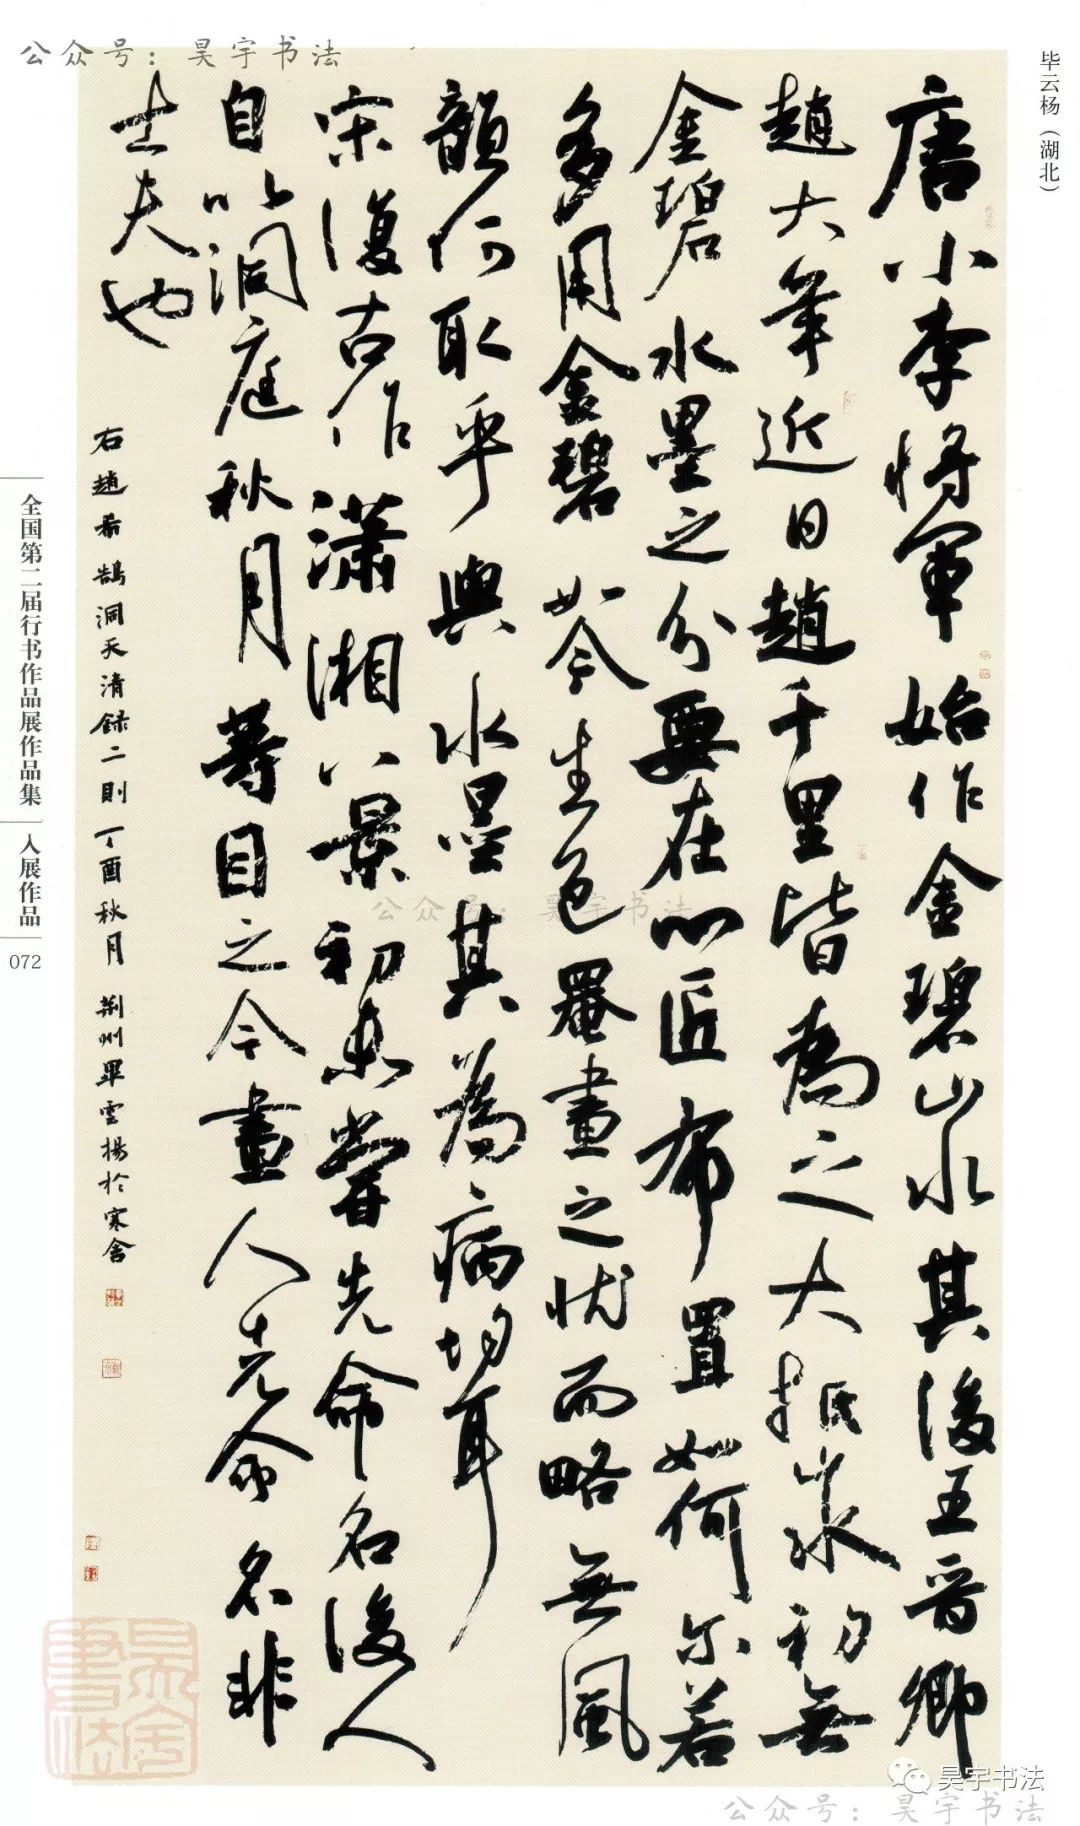 公众号：昊宇书法
毕云杨（湖北）
唐小李將軍始作金碧山水其後王晉卿
趙大年近日趙千里皆為之大抵山水初無
金碧水墨之分要在心匠布置如何尔若
多用金碧如今生色罨畫之狀而略無風
韻何取乎與水墨其為病均耳
宋復古作瀟湘八景初未嘗先命名後人
自以洞庭秋月等目之今畫人先命名非
士夫也
右趙希鵠洞天清録二則丁酉秋月荆州畢雲揚於寒舍
全国第二届行书作品展作品集
入展作品
072
公众号：昊宇书法
昊宇书法
昊宇书法
公众号：昊宇书法